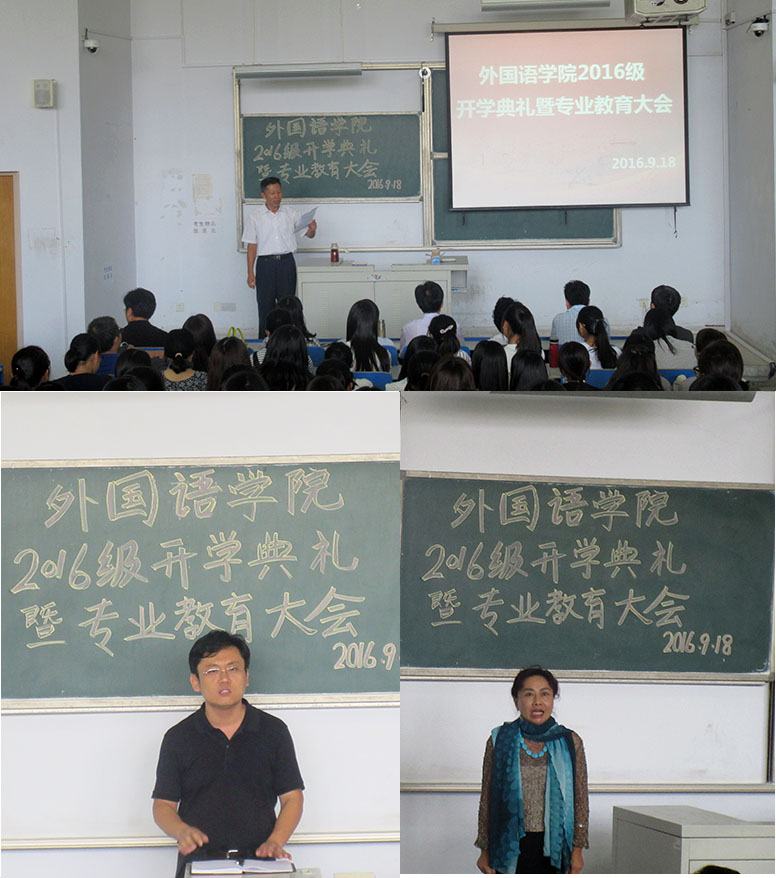 外国语学院2016级
开学典礼暨专业教育大会
2016.9.18
外国语学院
2016级开学典礼
暨专业教育大会
2016.9.18
外国语学院
2016级开学典礼
暨专业教育大会
2016.9
外国语学院
2016级开学典礼
暨专业教育大会
2016.9.18